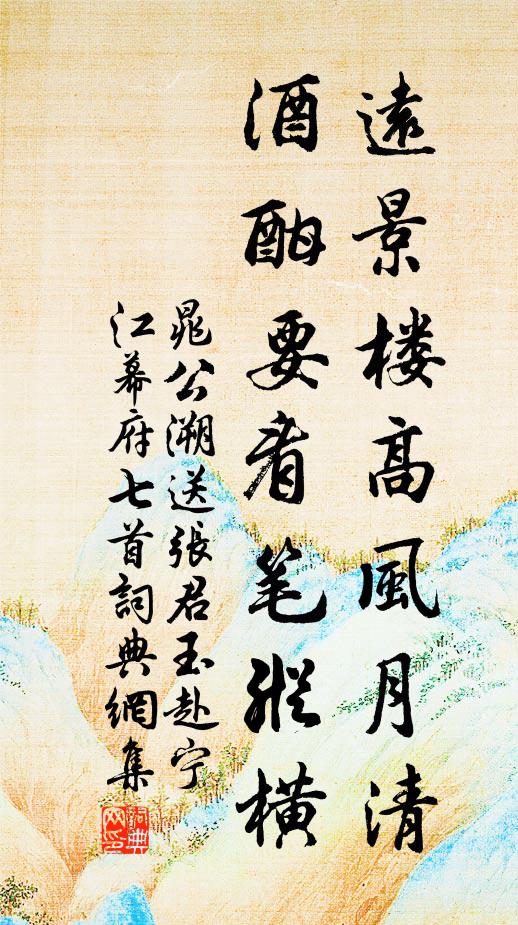 遠景楼高風月清
酒酣要看笔縱橫
晁公溯送張君玉赴宁
江幕府七首詞典網集
詞典
网印